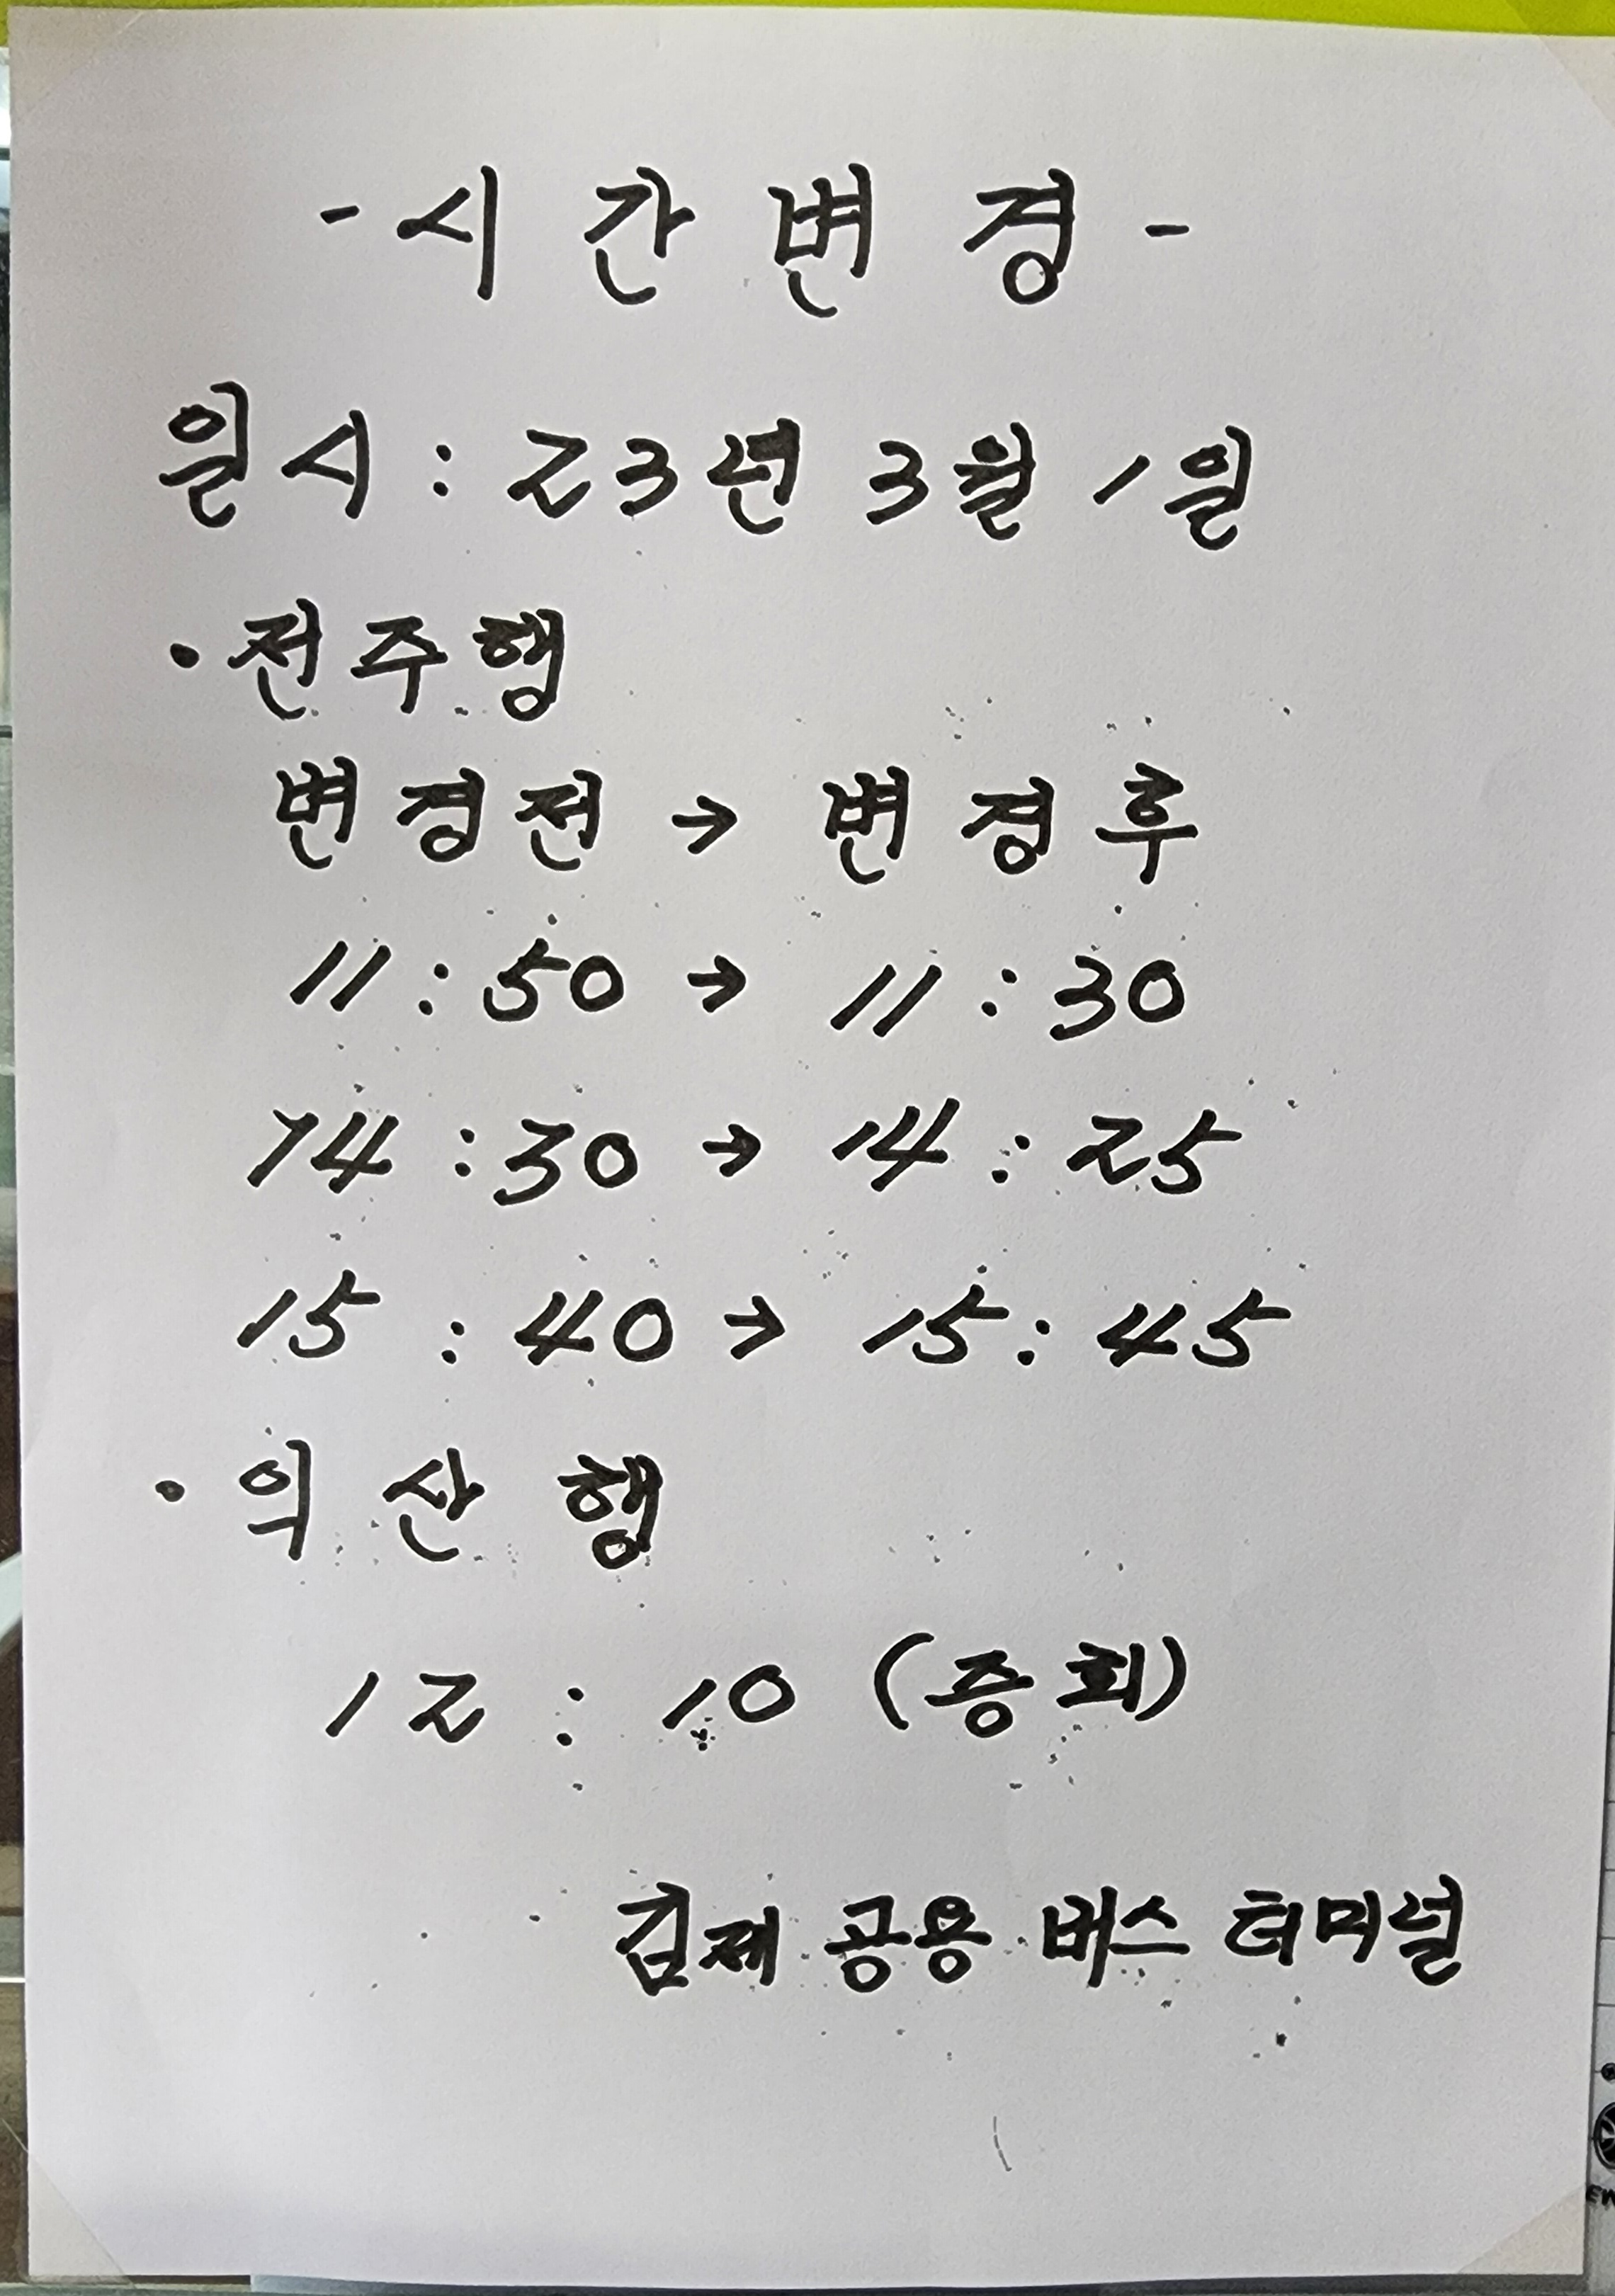 - 시간변경 -
일시 : 23년 3월 1일
· 전주행
변경전 → 변경후
11 : 50 → 11 : 30
14 : 30 → 14 : 25
15 : 40 → 15 : 45
· 익산행
12 : 10 (증회)
김제 공용 버스 터미널